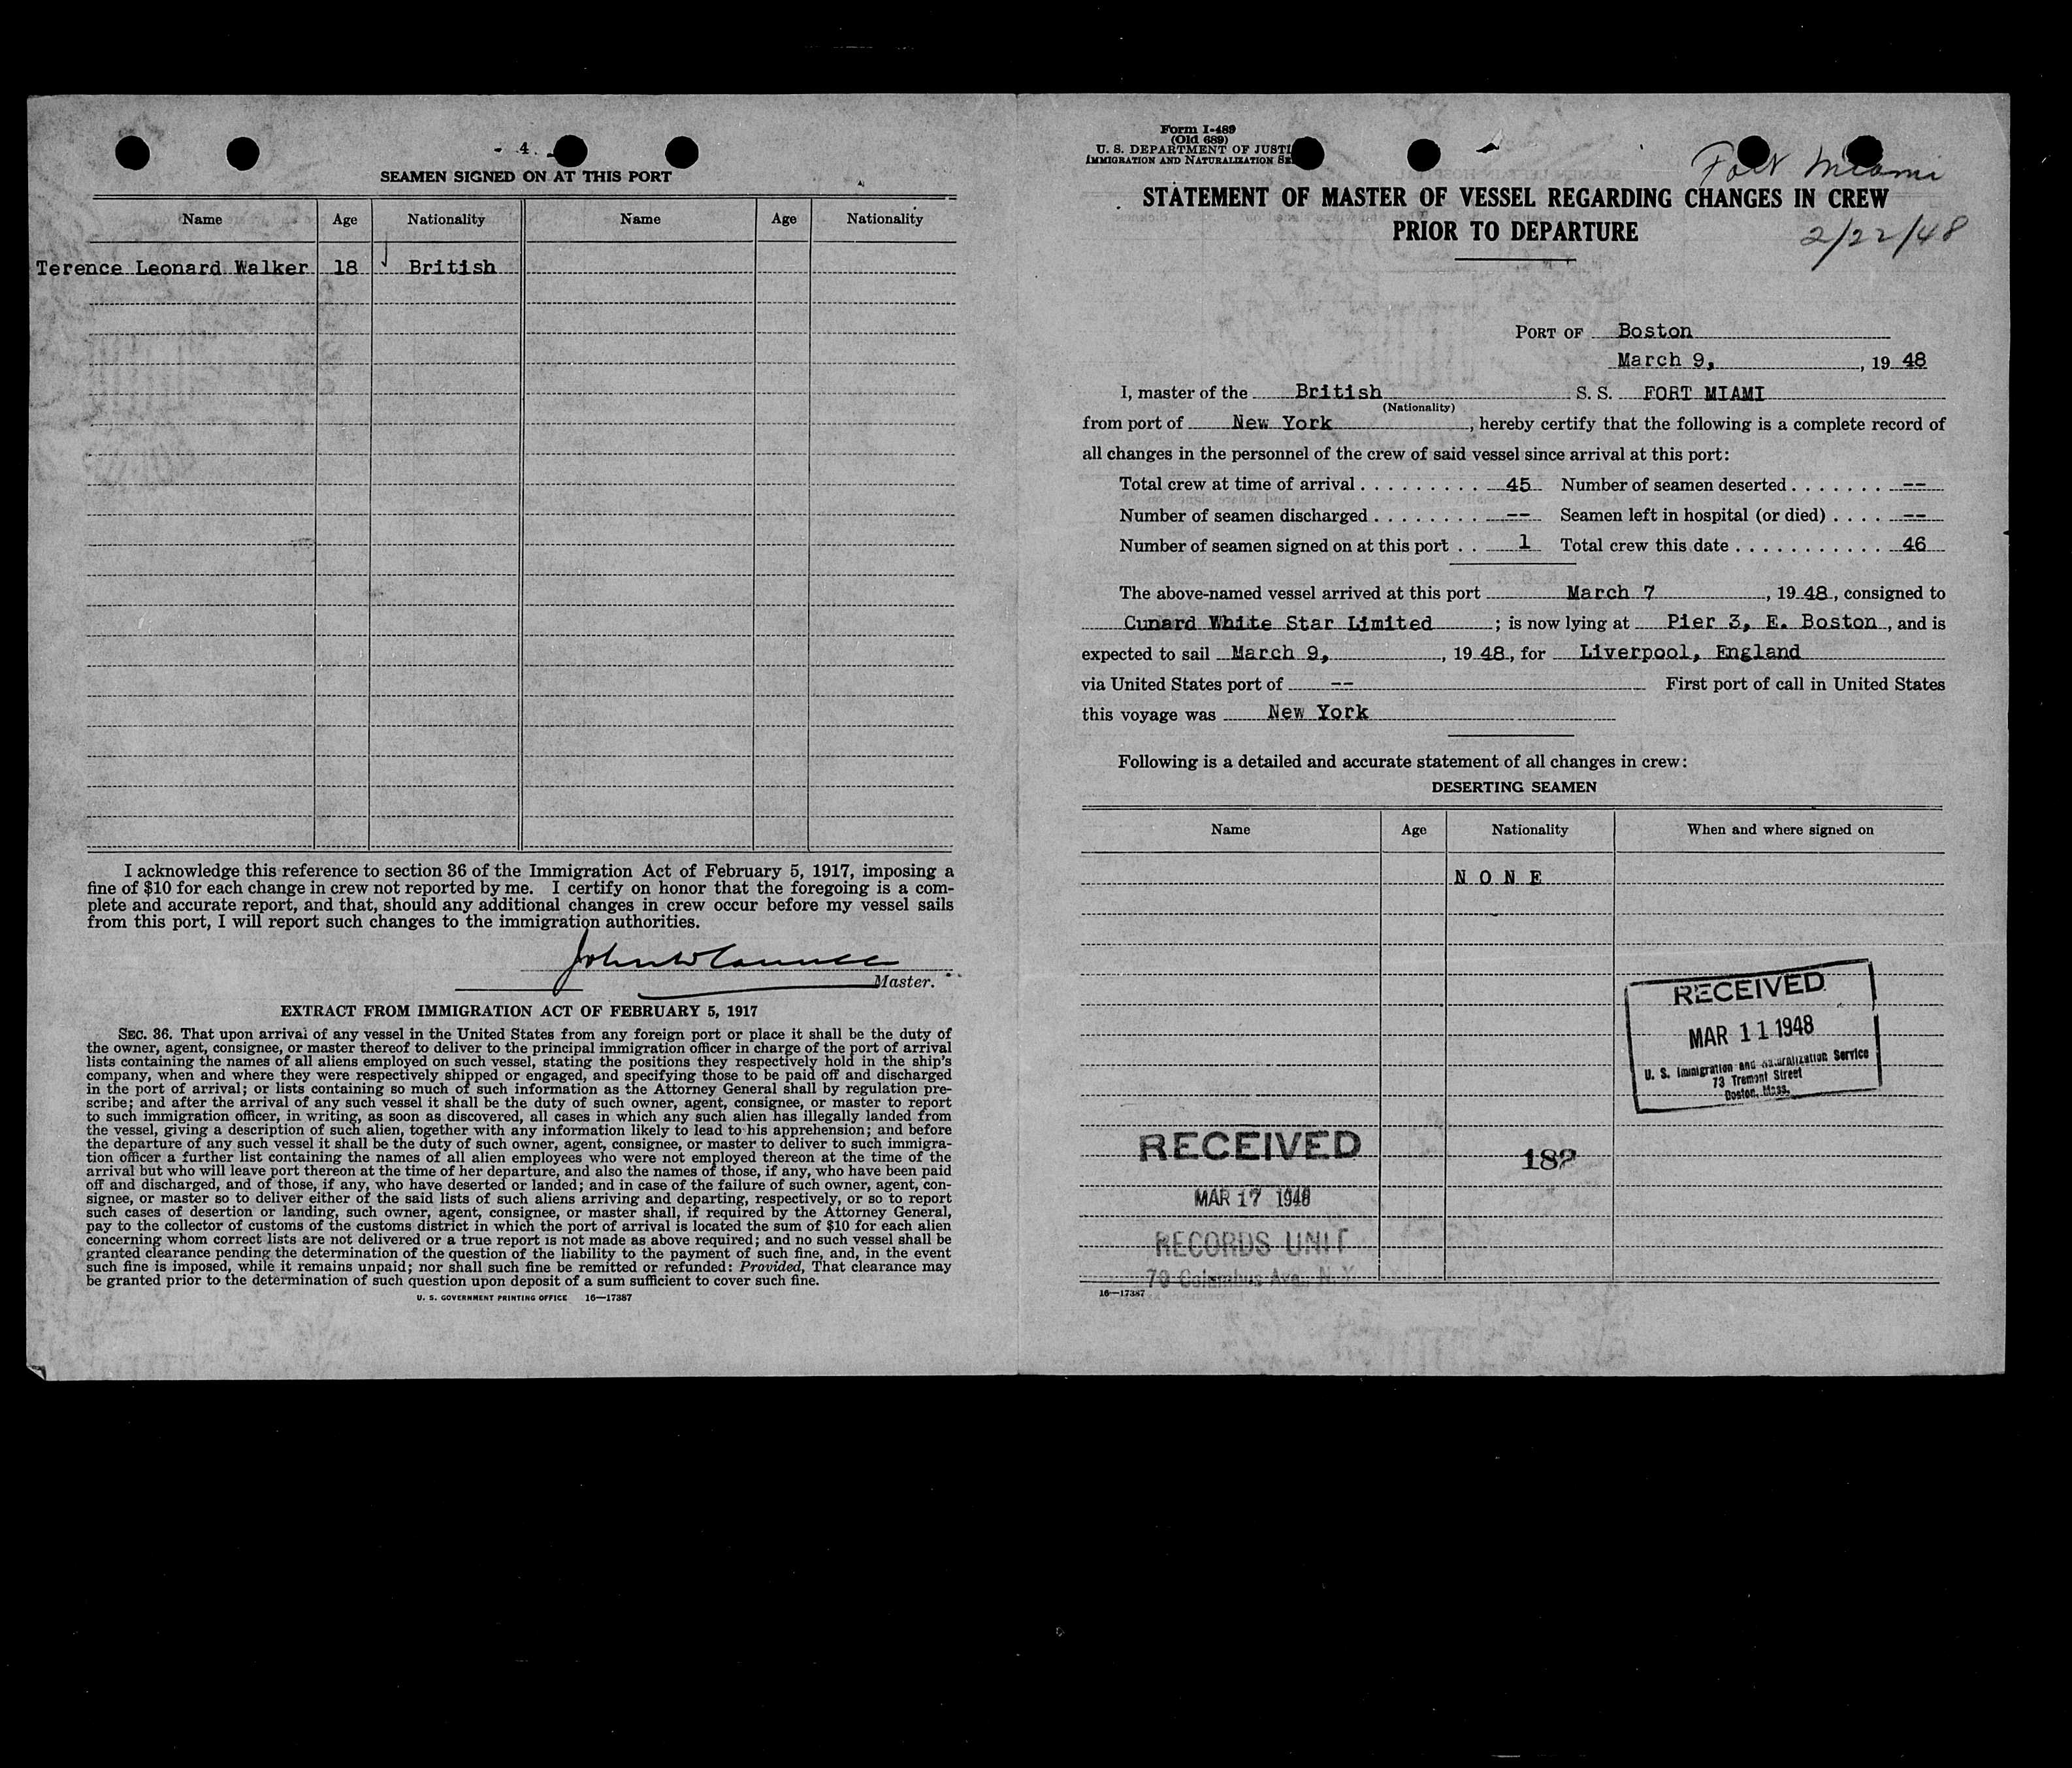 - 4 -
SEAMEN SIGNED ON AT THIS PORT
Name Age Nationality Name Age Nationality
Terence Leonard Walker 18 British
I acknowledge this reference to section 36 of the Immigration Act of February 5, 1917, imposing a
fine of $10 for each change in crew not reported by me. I certify on honor that the foregoing is a com-
plete and accurate report, and that, should any additional changes in crew occur before my vessel sails
from this port, I will report such changes to the immigration authorities.
John W
Master.
EXTRACT FROM IMMIGRATION ACT OF FEBRUARY 5, 1917
SEC. 36. That upon arrival of any vessel in the United States from any foreign port or place it shall be the duty of
the owner, agent, consignee, or master thereof to deliver to the principal immigration officer in charge of the port of arrival
lists containing the names of all aliens employed on such vessel, stating the positions they respectively hold in the ship's
company, when and where they were respectively shipped or engaged, and specifying those to be paid off and discharged
in the port of arrival; or lists containing so much of such information as the Attorney General shall by regulation pre-
scribe; and after the arrival of any such vessel it shall be the duty of such owner, agent, consignee, or master to report
to such immigration officer, in writing, as soon as discovered, all cases in which any such alien has illegally landed from
the vessel, giving a description of such alien, together with any information likely to lead to his apprehension; and before
the departure of any such vessel it shall be the duty of such owner, agent, consignee, or master to deliver to such immigra-
tion officer a further list containing the names of all alien employees who were not employed thereon at the time of the
arrival but who will leave port thereon at the time of her departure, and also the names of those, if any, who have been paid
off and discharged, and of those, if any, who have deserted or landed; and in case of the failure of such owner, agent, con-
signee, or master so to deliver either of the said lists of such aliens arriving and departing, respectively, or so to report
such cases of desertion or landing, such owner, agent, consignee, or master shall, if required by the Attorney General,
pay to the collector of customs of the customs district in which the port of arrival is located the sum of $10 for each alien
concerning whom correct lists are not delivered or a true report is not made as above required; and no such vessel shall be
granted clearance pending the determination of the question of the liability to the payment of such fine, and, in the event
such fine is imposed, while it remains unpaid; nor shall such fine be remitted or refunded: Provided, That clearance may
be granted prior to the determination of such question upon deposit of a sum sufficient to cover such fine.
U. S. GOVERNMENT PRINTING OFFICE 16—17387
Form I-489
(Old 689)
U. S. DEPARTMENT OF JUSTI
IMMIGRATION AND NATURALIZATION SE
Fort Miami
STATEMENT OF MASTER OF VESSEL REGARDING CHANGES IN CREW
PRIOR TO DEPARTURE
2/22/48
PORT OF Boston
March 9, , 19 48
I, master of the British S. S. FORT MIAMI
(Nationality)
from port of New York , hereby certify that the following is a complete record of
all changes in the personnel of the crew of said vessel since arrival at this port:
Total crew at time of arrival . . . . . . . . . . 45 Number of seamen deserted . . . . . . . --
Number of seamen discharged . . . . . . . . -- Seamen left in hospital (or died) . . . . --
Number of seamen signed on at this port . . 1 Total crew this date . . . . . . . . . . . 46
The above-named vessel arrived at this port March 7 , 19 48, consigned to
Cunard White Star Limited ; is now lying at Pier 3, E. Boston , and is
expected to sail March 9, , 19 48, for Liverpool, England
via United States port of -- First port of call in United States
this voyage was New York
Following is a detailed and accurate statement of all changes in crew:
DESERTING SEAMEN
Name Age Nationality When and where signed on
N O N E
RECEIVED
MAR 11 1948
U. S. Immigration and Naturalization Service
73 Tremont Street
Boston, Mass.
RECEIVED
182
MAR 17 1948
RECORDS UNIT
70 Columbus Ave., N. Y.
16—17387